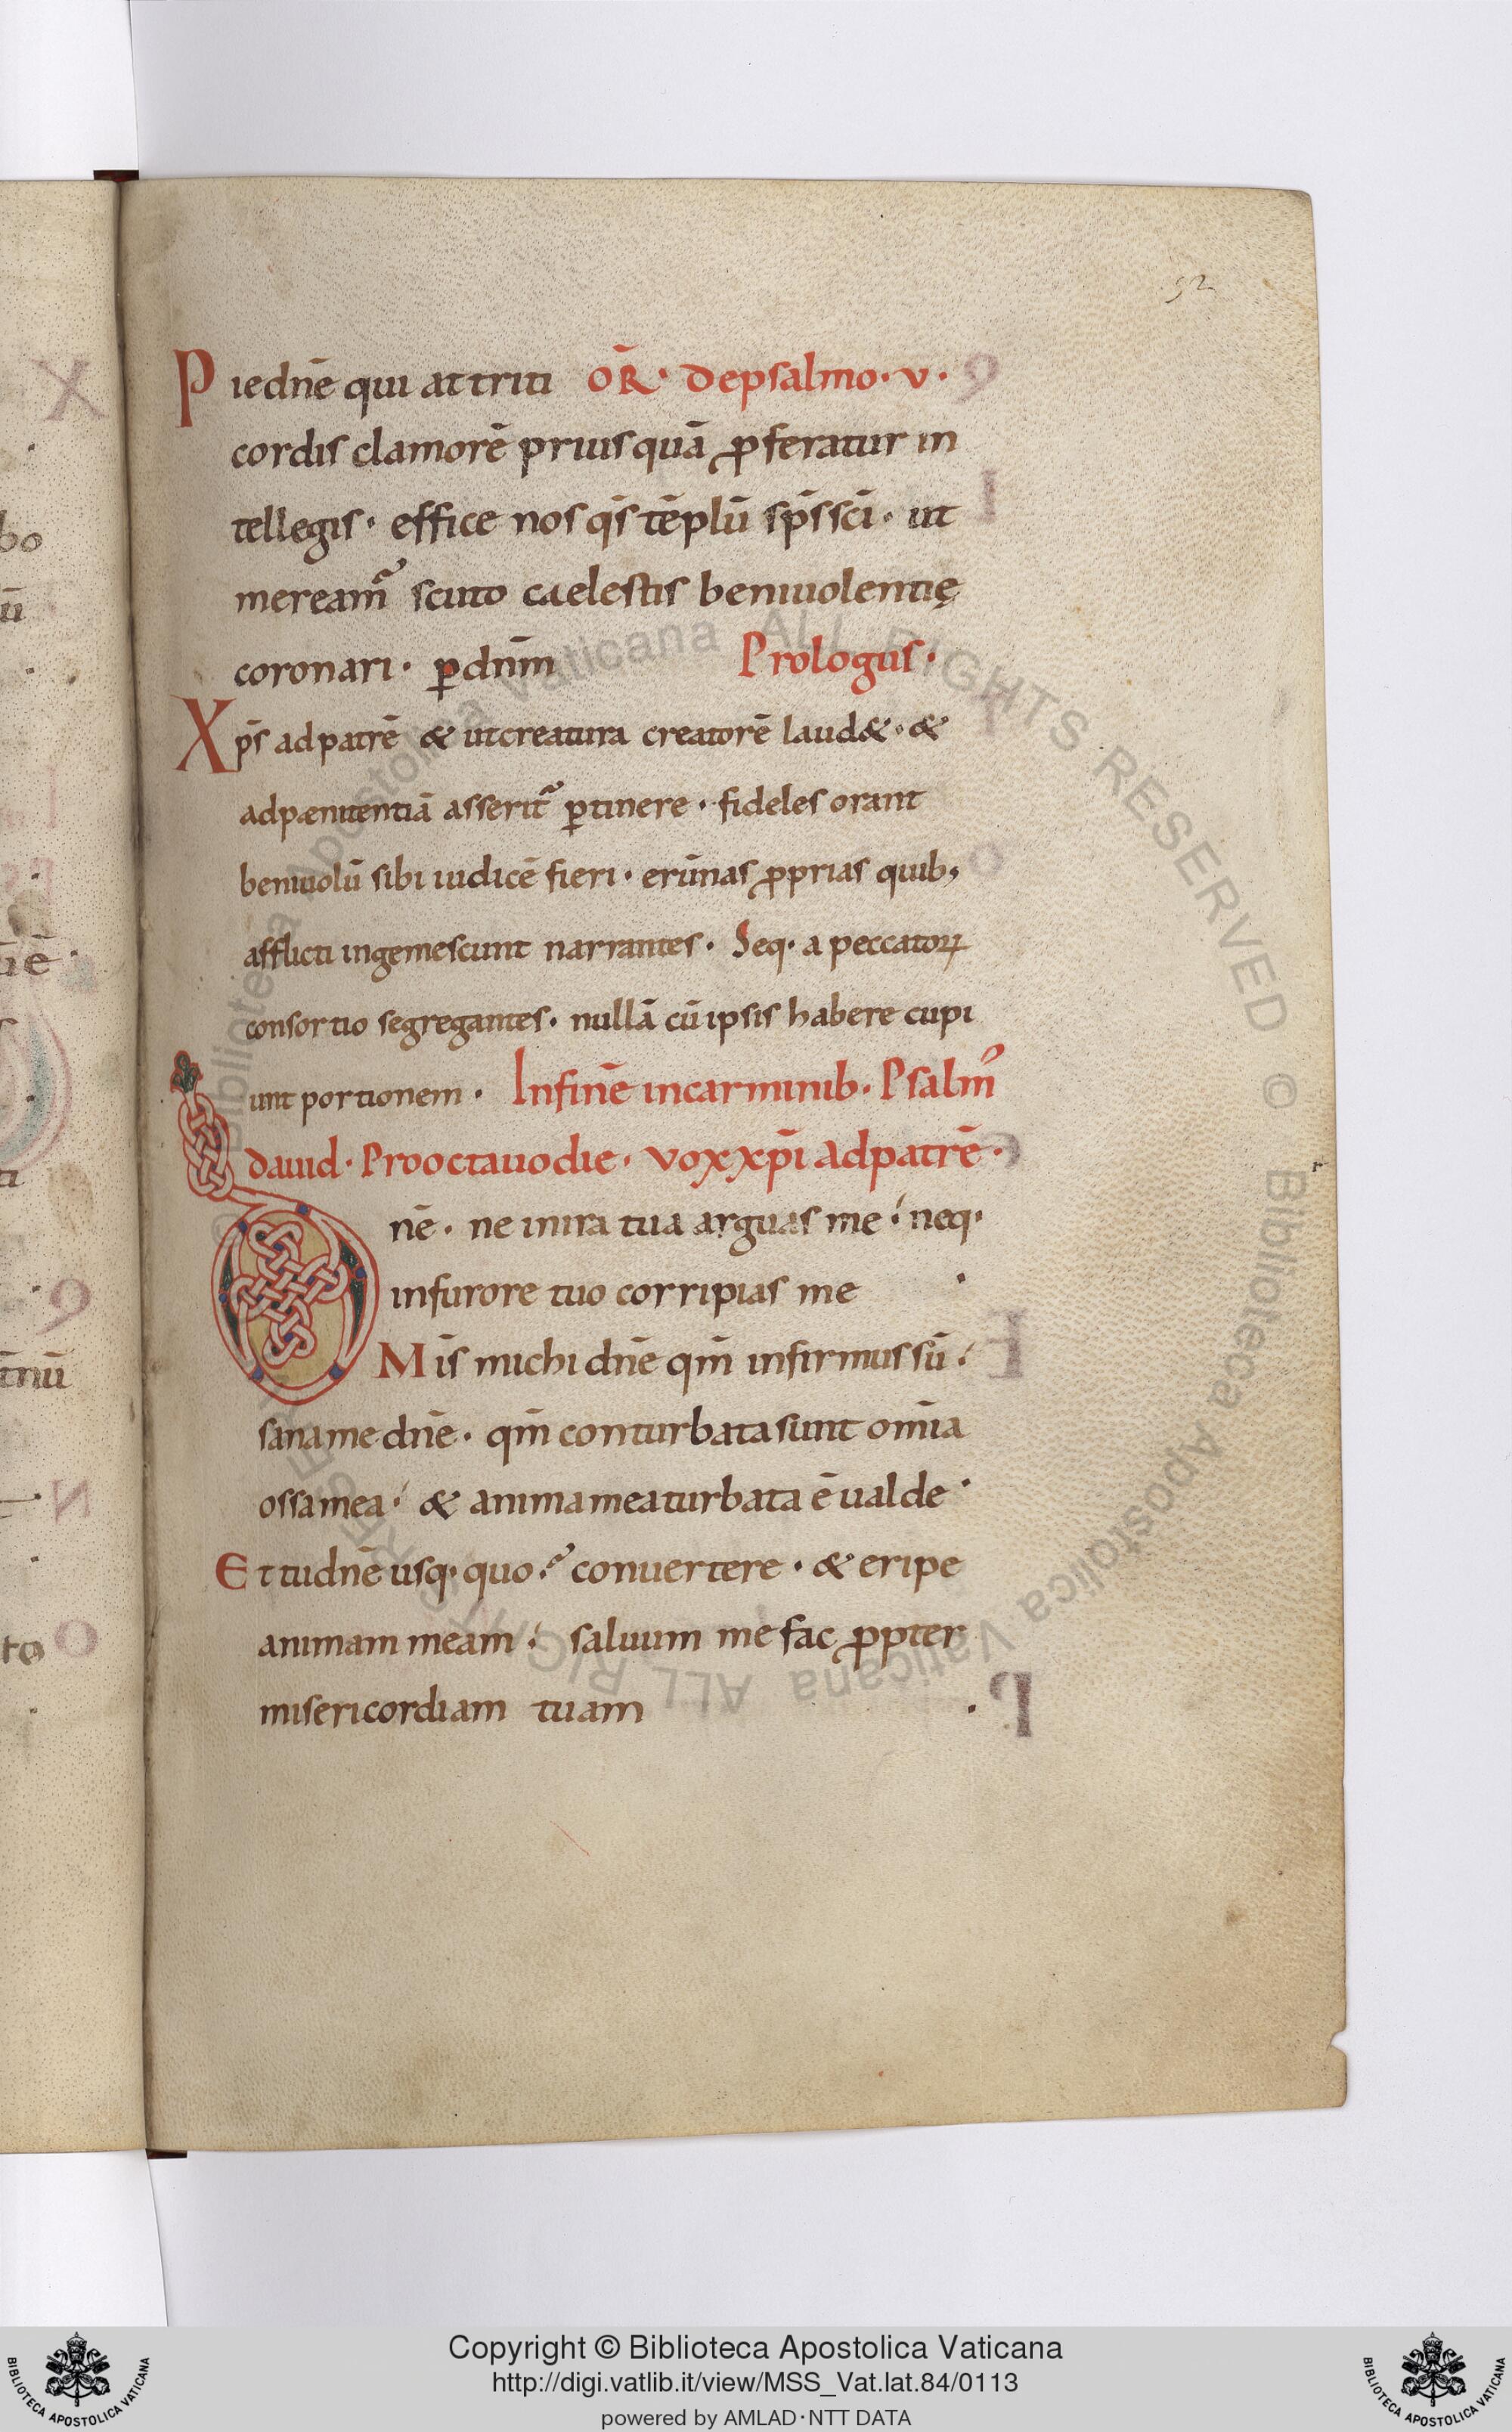 52
Piedn̄e qui attriti OR̄· Depsalmo·v·
cordis clamorē priusquā ꝓferatur in
tellegis· effice nos qs̄ tēplū sp̄s sc̄i· ut
meream̄ scuto caelestis beniuolentię
coronari· ꝑ dn̄m Prologus·
Xp̄s ad patrē & ut creatura creatorē laud&· &
ad pænitentiā asserit̄ ꝑtinere· fideles orant
beniuolū sibi iudicē fieri· erūnas ꝓprias quib;
afflicti ingemescunt narrantes· Seq· a peccatoꝝ
consortio segregantes· nullā cū ipsis habere cupi
unt portionem· In finē in carminib· Psalm̄
dauid· Pro octauo die· vox xp̄i ad patrē·
D nē· ne in ira tua arguas me· neq·
in furore tuo corripias me·
Mis̄ michi dn̄e qm̄ infirmus sū·
sana me dn̄e· qm̄ conturbata sunt om̄ia
ossa mea· & anima mea turbata ē ualde·
Et tu dn̄e usq· quo· conuertere· & eripe
animam meam· saluum me fac ꝓpter
misericordiam tuam·
Copyright © Biblioteca Apostolica Vaticana
http://digi.vatlib.it/view/MSS_Vat.lat.84/0113
powered by AMLAD·NTT DATA
BIBLIOTECA APOSTOLICA VATICANA
BIBLIOTECA APOSTOLICA VATICANA
© Biblioteca Apostolica Vaticana ALL RIGHTS RESERVED © Biblioteca Apostolica Vaticana ALL RIGHTS RESERVED